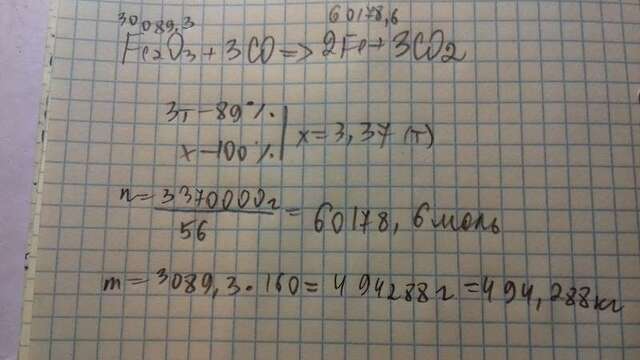 30089,3 60178,6
Fe2O3 + 3CO => 2Fe + 3CO2
3т - 89%
x - 100% | x = 3,37 (т)
n = 3370000г / 56 = 60178,6 моль
m = 3089,3 · 160 = 494288 г = 494,288 кг